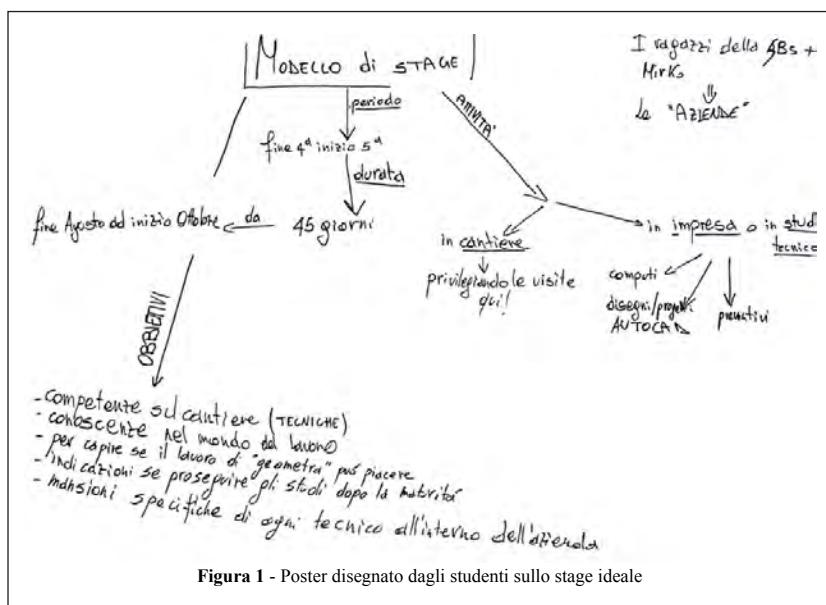 MODELLO di STAGE
I ragazzi della 5Bs +
Mirko
Le "AZIENDE"
periodo
fine 4ª inizio 5ª
durata
45 giorni
da
fine Agosto ad inizio Ottobre
ATTIVITA'
in cantiere
privilegiando le visite
qui!
in impresa o in studi
tecnico
computi
disegni/progetti
AUTOCAD
preventivi
OBBIETTIVI
- competenze sul cantiere (TECNICHE)
- conoscenze nel mondo del lavoro
- per capire se il lavoro di "geometra" può piacere
- indicazioni se proseguire gli studi dopo la maturità
- mansioni specifiche di ogni tecnico all'interno dell'azienda
Figura 1 - Poster disegnato dagli studenti sullo stage ideale